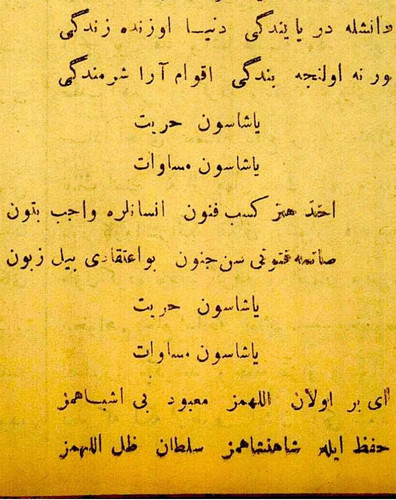 دانشله در پایندگی دنیا اوزنده زندگی
ور نه اولنجه بندگی اقوام آرا شرمندگی
یاشاسون حریت
یاشاسون مساوات
اخذ هنر کسب فنون انسانلره واجب بتون
صانمه سن جنون بو اعتقادی بیل زبون
یاشاسون حریت
یاشاسون مساوات
ای بر اولان اللهمز معبود بی اشباهمز
حفظ ایله شاهنشاهمز سلطان ظل اللهمز